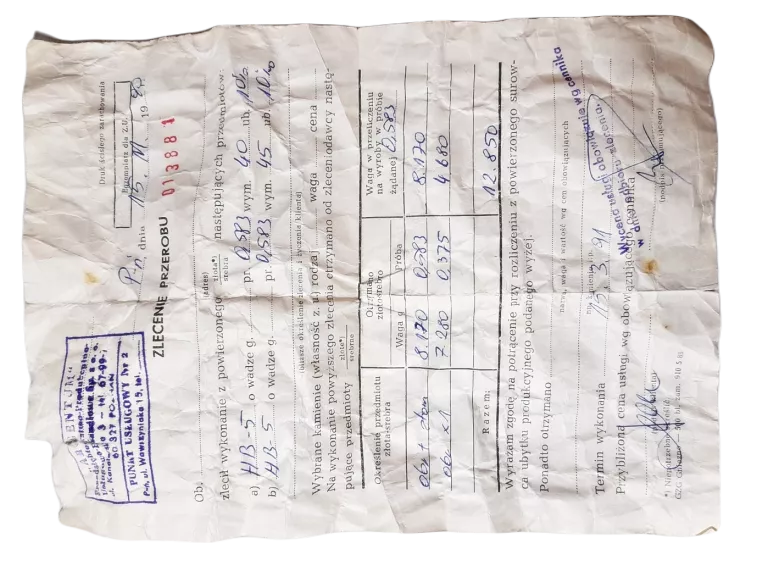 "ARGENTUM"
ul. 3 - tel. 67-99-
60 327 POZNAŃ
PUNKT USŁUGOWY Nr 2
Pń, ul. Wawrzyniaka 19, tel.
Druk ścisłego zarachowania
P-ń dnia 15. 19
ZLECENIE PRZEROBU 013881
Ob.
(adres)
zlecił wykonanie z powierzonego złota*) srebra następujących przedmiotów:
a) HB-5 o wadze g. pr. 0,583 wym. 40 ub. 10%
b) HB-5 o wadze g. pr. 0,583 wym. 45 ub. 10%
(bliższe określenie zlecenia i życzenia klienta)
Wybrane kamienie (własność z. u.) rodzaj waga cena
Na wykonanie powyższego zlecenia otrzymano od zleceniodawcy nastę-
pujące przedmioty złote*) srebrne
Określenie przedmiotu złota-srebra
Otrzymano złoto-srebro
Waga g Próba
Waga w przeliczeniu na wyroby w próbie żądanej 0,583
obr + złom 8.170 0,583 8.170
obr x1 7.280 0,375 4.680
Razem: 12.850
Wyrażam zgodę na potrącenie przy rozliczeniu z powierzonego surow-
ca ubytku produkcyjnego podanego wyżej.
Ponadto otrzymano
nazwa, waga i wartość wg cen obowiązujących
na kamienie i p.
Termin wykonania 15.3.91
Wycena usługi obowiązuje wg cennika
w dniu odbioru zlecenia.
Przybliżona cena usługi wg obowiązującego cennika
*) Niepotrzebne skreślić